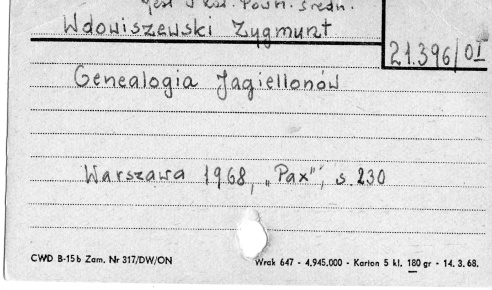 Jest w Kat. Powsz. Średn.
Wdowiszewski Zygmunt
21.396/OI
Genealogia Jagiellonów
Warszawa 1968, „Pax”, s. 230
CWD B-15 b Zam. Nr 317/DW/ON
Wrak 647 - 4.945.000 - Karton 5 kl. 180 gr - 14. 3. 68.